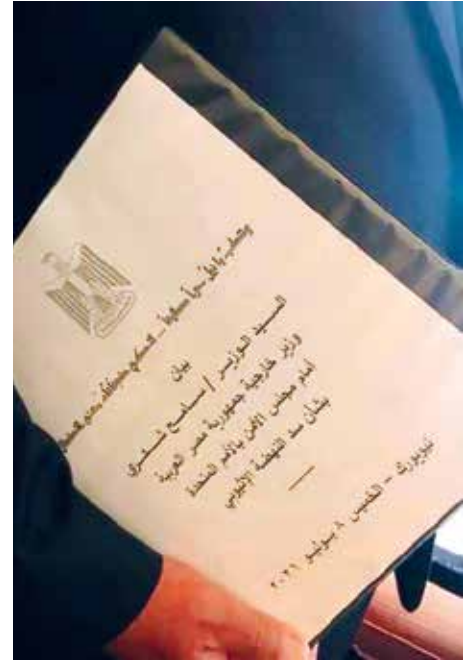 بيان
السيد الوزير / سامح شكري
وزير خارجية جمهورية مصر العربية
أمام مجلس الأمن بالأمم المتحدة
بشأن سد النهضة الإثيوبي
نيويورك – الخميس ٨ يوليو ٢٠٢١